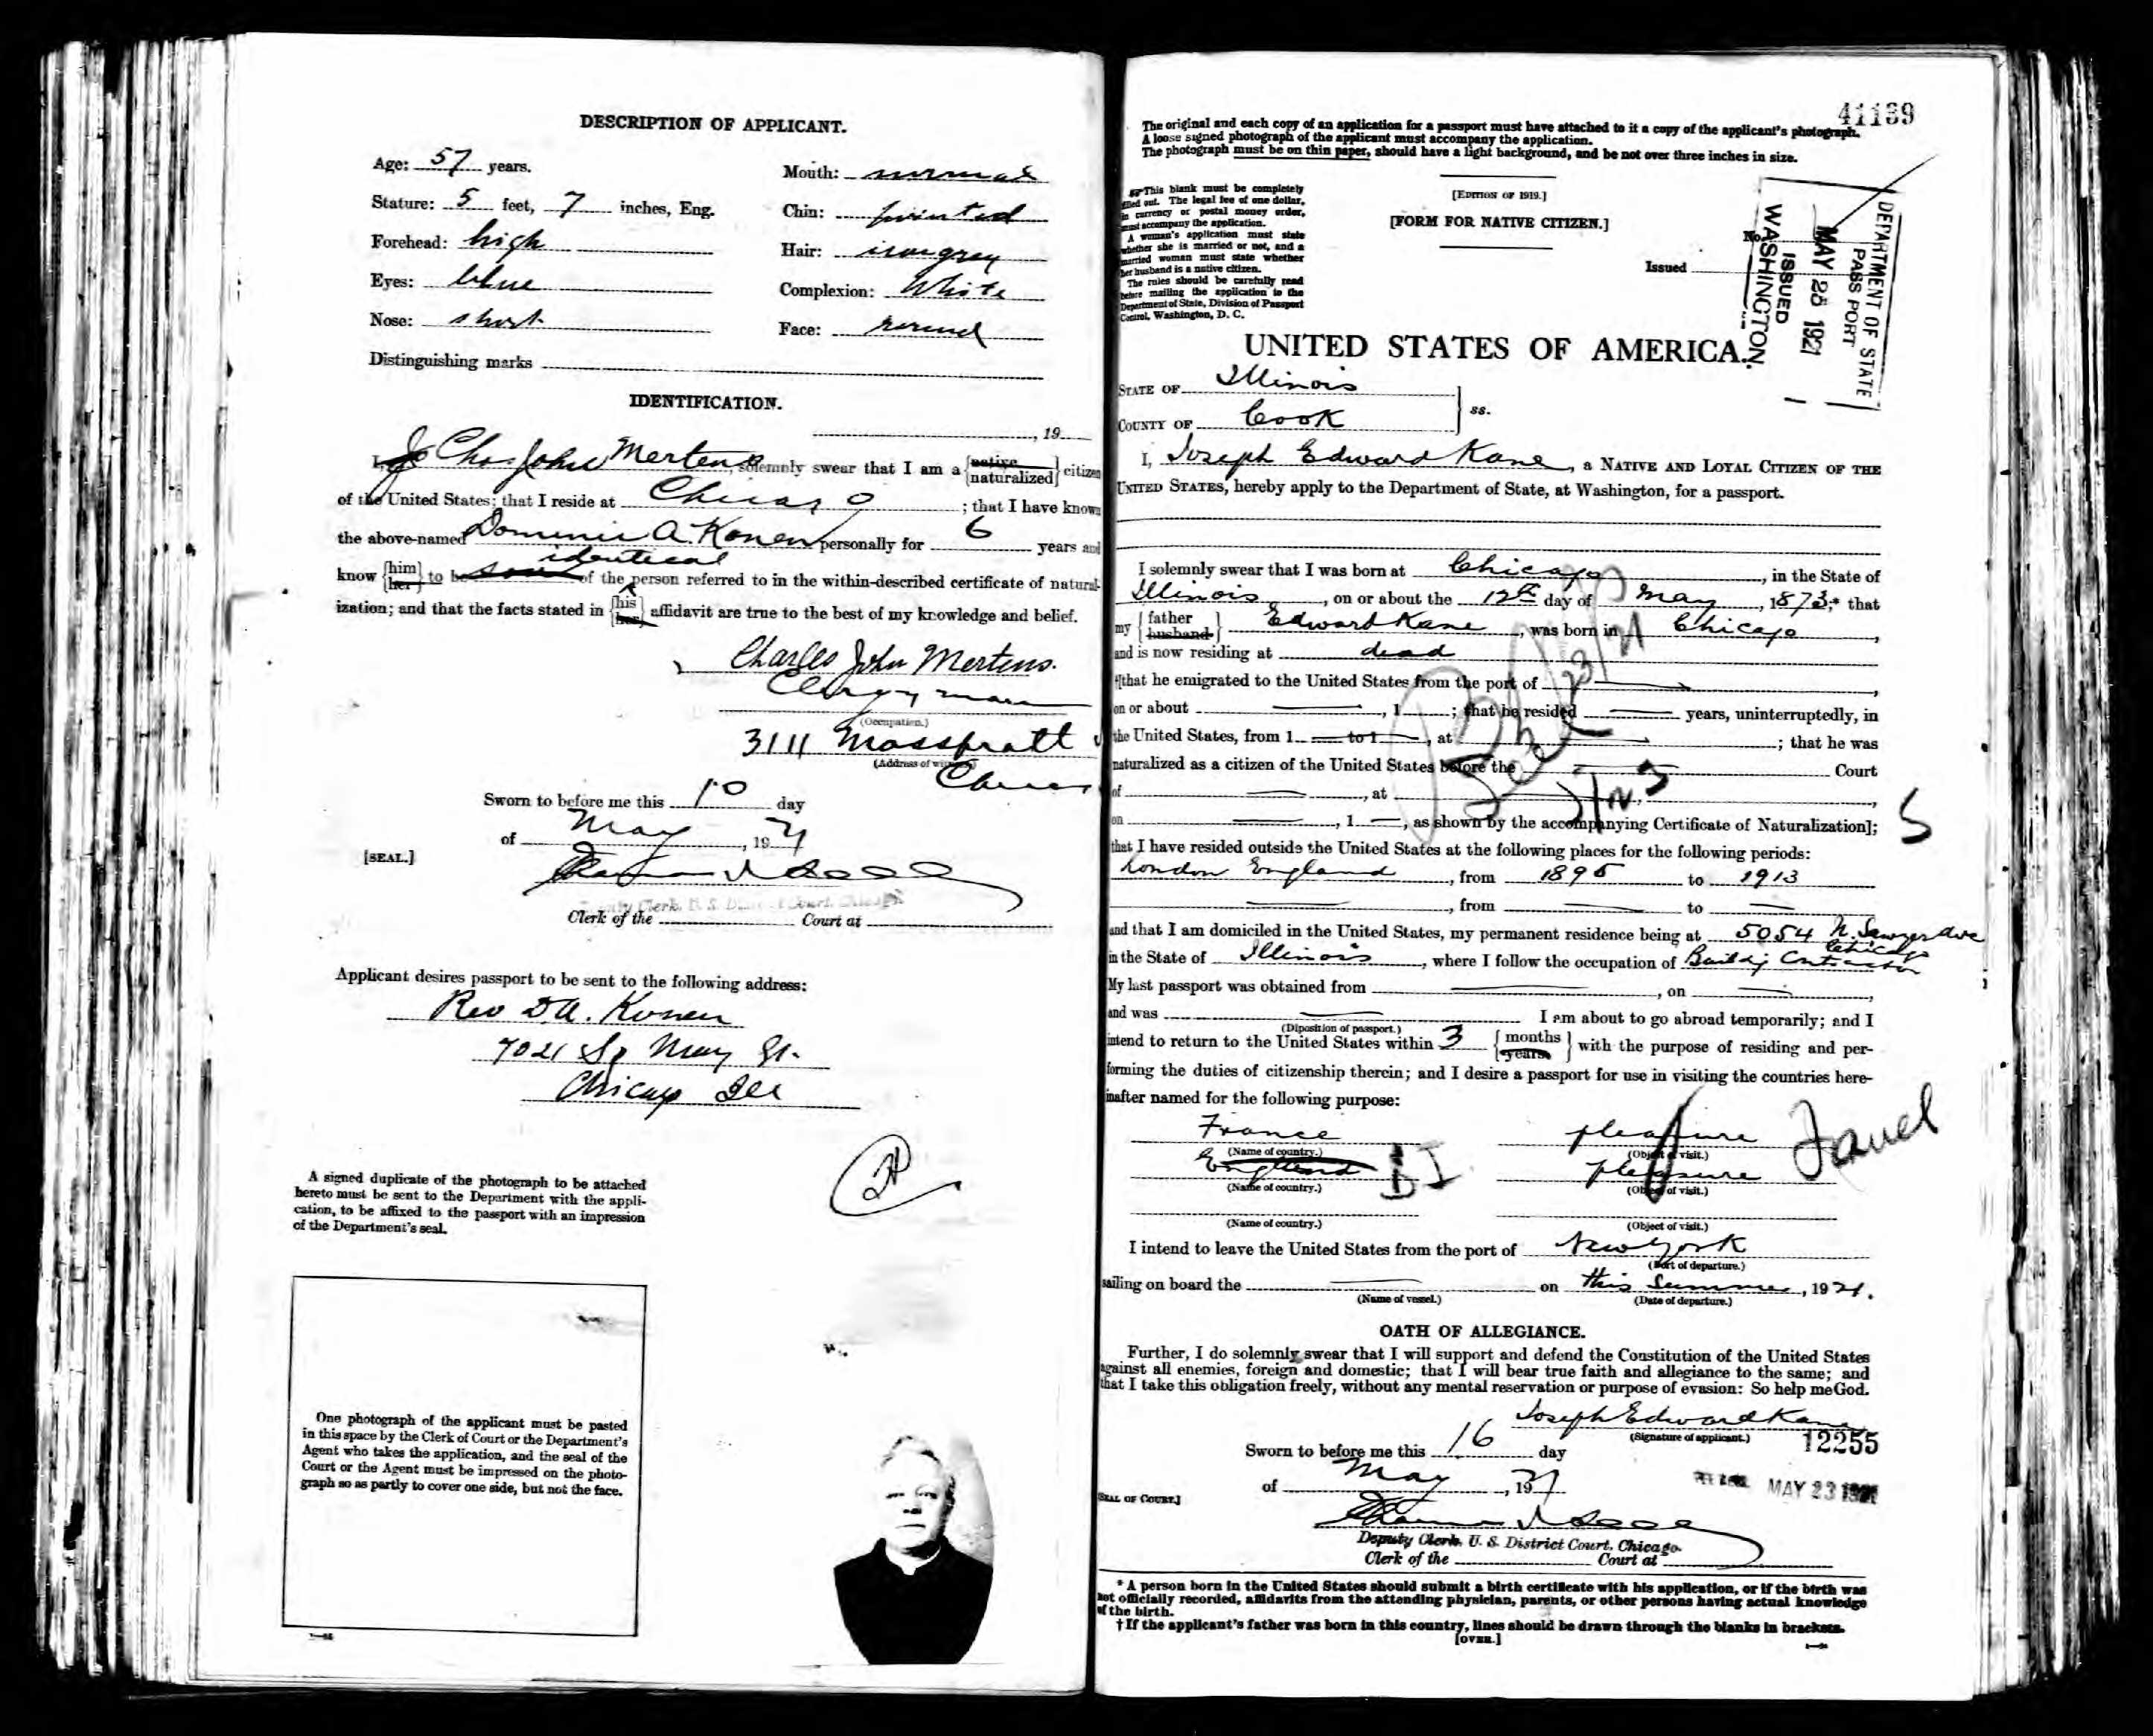 DESCRIPTION OF APPLICANT.
Age: 57 years.
Mouth: normal
Stature: 5 feet, 7 inches, Eng.
Chin: pointed
Forehead: high
Hair: iron grey
Eyes: blue
Complexion: White
Nose: short
Face: round
Distinguishing marks
IDENTIFICATION.
, 19
I, Chas John Mertens, solemnly swear that I am a {native naturalized} citizen
of the United States; that I reside at Chicago ; that I have known
the above-named Dominic A. Konen personally for 6 years and
identical
know {him her} to be of the person referred to in the within-described certificate of natural-
ization; and that the facts stated in {his her} affidavit are true to the best of my knowledge and belief.
Charles John Mertens.
Clergyman
(Occupation.)
3111 Mosspratt
(Address of witness)
Sworn to before me this 10 day
of May, 1921
[SEAL.]
Deputy Clerk, U. S. District Court, Chicago
Clerk of the Court at
Applicant desires passport to be sent to the following address:
Rev D.A. Konen
7021 So May St.
Chicago Ill
A signed duplicate of the photograph to be attached
hereto must be sent to the Department with the appli-
cation, to be affixed to the passport with an impression
of the Department's seal.
One photograph of the applicant must be pasted
in this space by the Clerk of Court or the Department's
Agent who takes the application, and the seal of the
Court or the Agent must be impressed on the photo-
graph so as partly to cover one side, but not the face.
41139
The original and each copy of an application for a passport must have attached to it a copy of the applicant's photograph.
A loose signed photograph of the applicant must accompany the application.
The photograph must be on thin paper, should have a light background, and be not over three inches in size.
This blank must be completely
filled out. The legal fee of one dollar,
in currency or postal money order,
must accompany the application.
A woman's application must state
whether she is married or not, and a
married woman must state whether
her husband is a native citizen.
The rules should be carefully read
before mailing the application to the
Department of State, Division of Passport
Control, Washington, D. C.
[EDITION OF 1919.]
[FORM FOR NATIVE CITIZEN.]
No.
Issued
DEPARTMENT OF STATE
PASSPORT
MAY 25 1921
ISSUED
WASHINGTON.
UNITED STATES OF AMERICA.
STATE OF Illinois
COUNTY OF Cook
ss.
I, Joseph Edward Kane, a NATIVE AND LOYAL CITIZEN OF THE
UNITED STATES, hereby apply to the Department of State, at Washington, for a passport.
I solemnly swear that I was born at Chicago, in the State of
Illinois, on or about the 12th day of May, 1873;* that
my {father husband} Edward Kane, was born in Chicago,
and is now residing at dead
†[that he emigrated to the United States from the port of ,
on or about , 1 ; that he resided years, uninterruptedly, in
the United States, from 1 to 1 , at ; that he was
naturalized as a citizen of the United States before the Court
of , at ,
on , 1 , as shown by the accompanying Certificate of Naturalization];
that I have resided outside the United States at the following places for the following periods:
London England, from 1895 to 1913
, from to
and that I am domiciled in the United States, my permanent residence being at 5054 N. Sawyer Ave
Chicago
in the State of Illinois, where I follow the occupation of Building Contractor
My last passport was obtained from , on ,
and was I am about to go abroad temporarily; and I
(Diposition of passport.)
intend to return to the United States within 3 {months years} with the purpose of residing and per-
forming the duties of citizenship therein; and I desire a passport for use in visiting the countries here-
inafter named for the following purpose:
France pleasure
(Name of country.) (Object of visit.)
England BI pleasure
(Name of country.) (Object of visit.)
(Name of country.) (Object of visit.)
I intend to leave the United States from the port of New York
(Port of departure.)
sailing on board the on this Summer, 1921.
(Name of vessel.) (Date of departure.)
OATH OF ALLEGIANCE.
Further, I do solemnly swear that I will support and defend the Constitution of the United States
against all enemies, foreign and domestic; that I will bear true faith and allegiance to the same; and
that I take this obligation freely, without any mental reservation or purpose of evasion: So help me God.
Joseph Edward Kane
(Signature of applicant.)
12255
Sworn to before me this 16 day
of May, 1921
MAY 23 1921
[SEAL OF COURT.]
Deputy Clerk, U. S. District Court, Chicago.
Clerk of the Court at
* A person born in the United States should submit a birth certificate with his application, or if the birth was
not officially recorded, affidavits from the attending physician, parents, or other persons having actual knowledge
of the birth.
† If the applicant's father was born in this country, lines should be drawn through the blanks in brackets.
[OVER.]